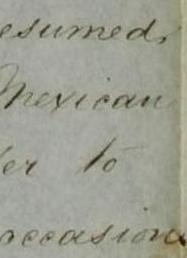 esumed,
Mexican
er to
occasions